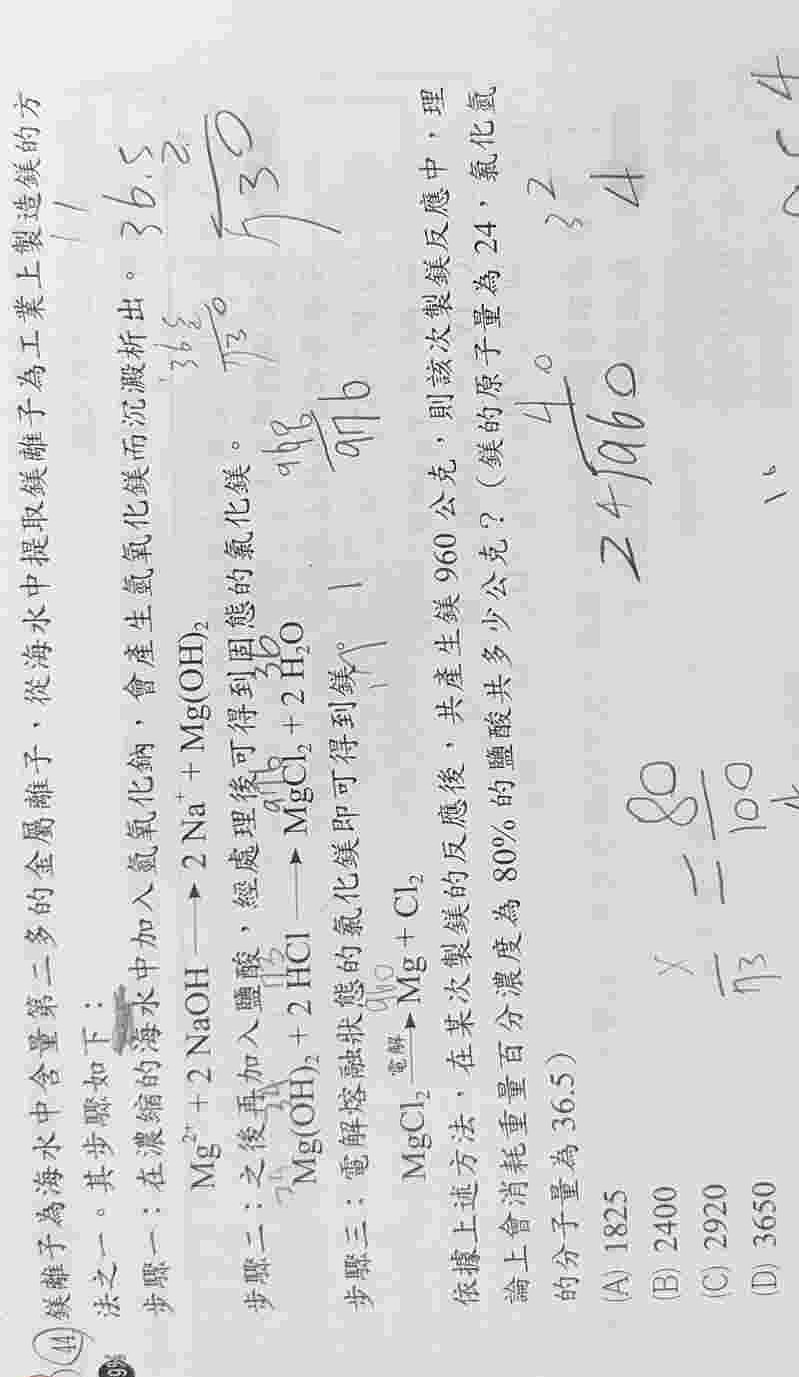 44 鎂離子為海水中含量第二多的金屬離子，從海水中提取鎂離子為工業上製造鎂的方
9% 法之一。其步驟如下：
步驟一：在濃縮的海水中加入氫氧化鈉，會產生氫氧化鎂而沉澱析出。
Mg²⁺ + 2 NaOH ⟶ 2 Na⁺ + Mg(OH)₂
步驟二：之後再加入鹽酸，經處理後可得到固態的氯化鎂。
Mg(OH)₂ + 2 HCl ⟶ MgCl₂ + 2 H₂O
步驟三：電解熔融狀態的氯化鎂即可得到鎂。
電解
MgCl₂ ⟶ Mg + Cl₂
依據上述方法，在某次製鎂的反應後，共產生鎂 960 公克，則該次製鎂反應中，理
論上會消耗重量百分濃度為 80% 的鹽酸共多少公克？（鎂的原子量為 24，氯化氫
的分子量為 36.5）
(A) 1825
(B) 2400
(C) 2920
(D) 3650
36.5
2
730
365
730
73
36
960
976
40
24 960
32
4
x
73
=
80
100